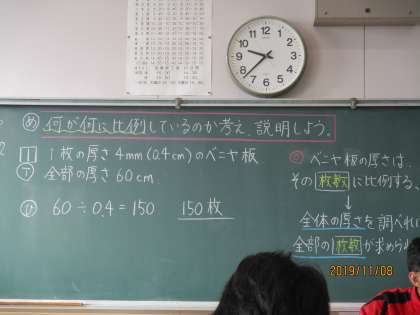 め 何が何に比例しているのか考え、説明しよう。
1 1枚の厚さ4mm(0.4cm)のベニヤ板
下 全部の厚さ60cm
ひ 60÷0.4=150 150枚
ベニヤ板の厚さは…
その枚数に比例する。
↓
全体の厚さを調べれば
全部の枚数が求められ
2019/11/08
12
1
2
3
4
5
6
7
8
9
10
11